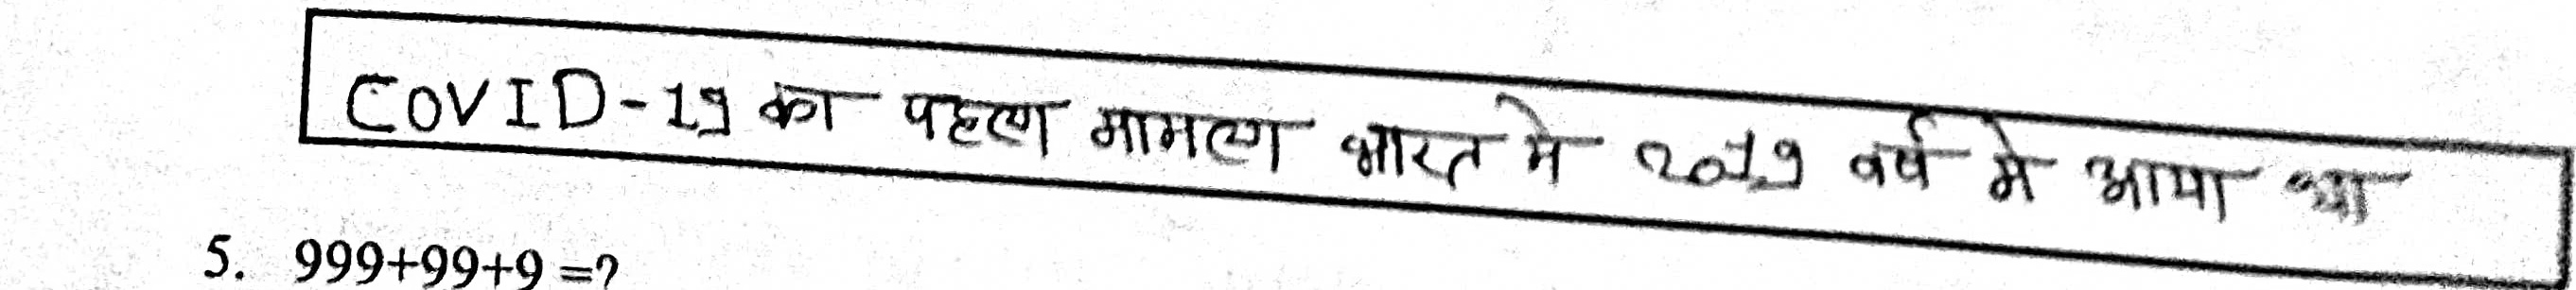 COVID-19 का पहला मामला भारत मे 2019 वर्ष मे आया था
5. 999+99+9 =?